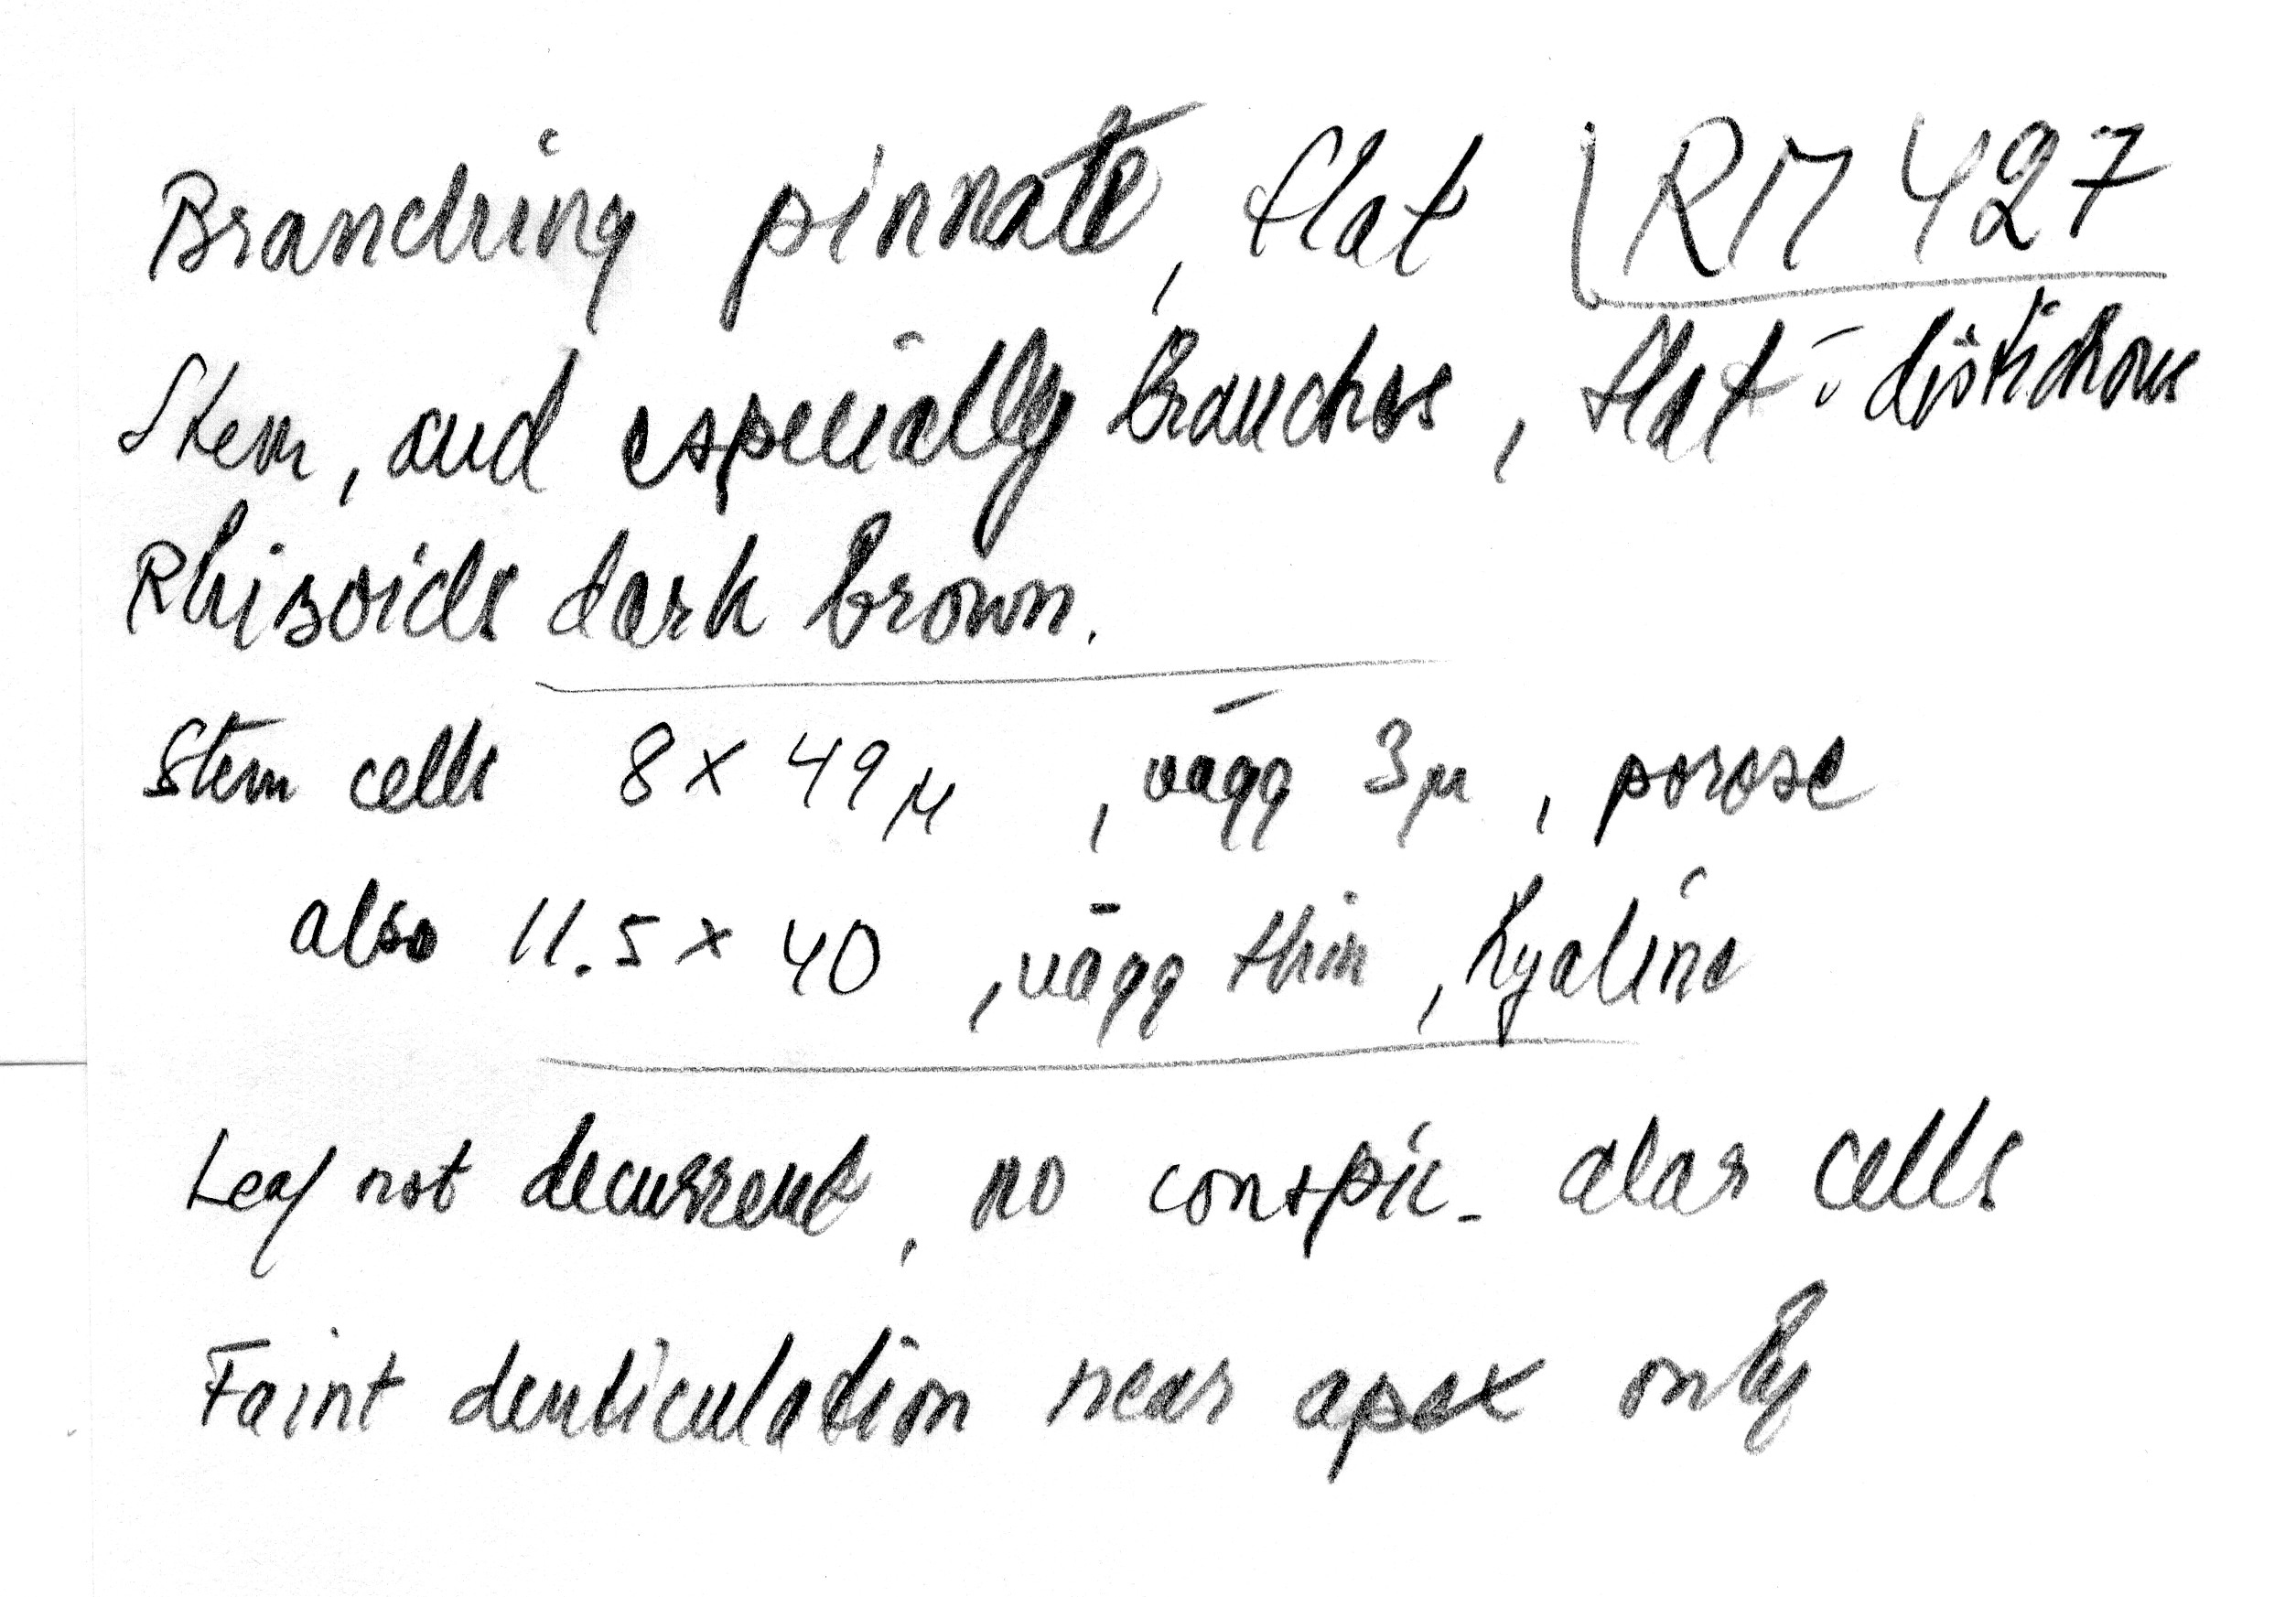 Branching pinnate, flat RM 427
Stem, and especially branches, flat-distichous
Rhizoids dark brown.
Stem cells 8 x 49 μ, vägg 3μ, porose
also 11.5 x 40, vägg thin, hyaline
Leaf not decurrent, no conspic. alar cells
Faint denticulation near apex only